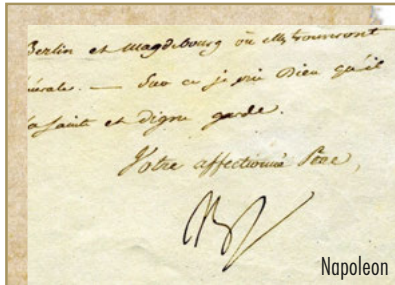 Berlin et Magdebourg où elles trouveront
nérale. — Sur ce je prie Dieu qu'il
sa sainte et digne garde.
Votre affectionné Père,
Napoleon